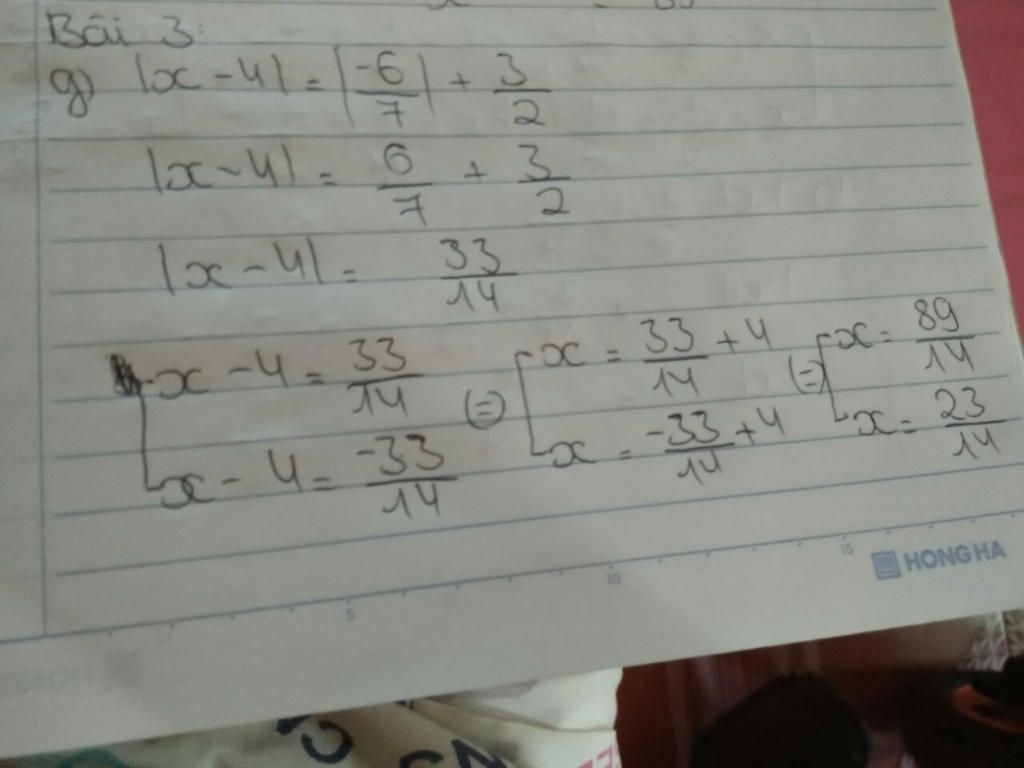 Bài 3:
g) |x - 4| = |-6/7| + 3/2
|x - 4| = 6/7 + 3/2
|x - 4| = 33/14
[x - 4 = 33/14 (=) [x = 33/14 + 4 (=) [x = 89/14
[x - 4 = -33/14 [x = -33/14 + 4 [x = 23/14
5 10 15 HONG HA